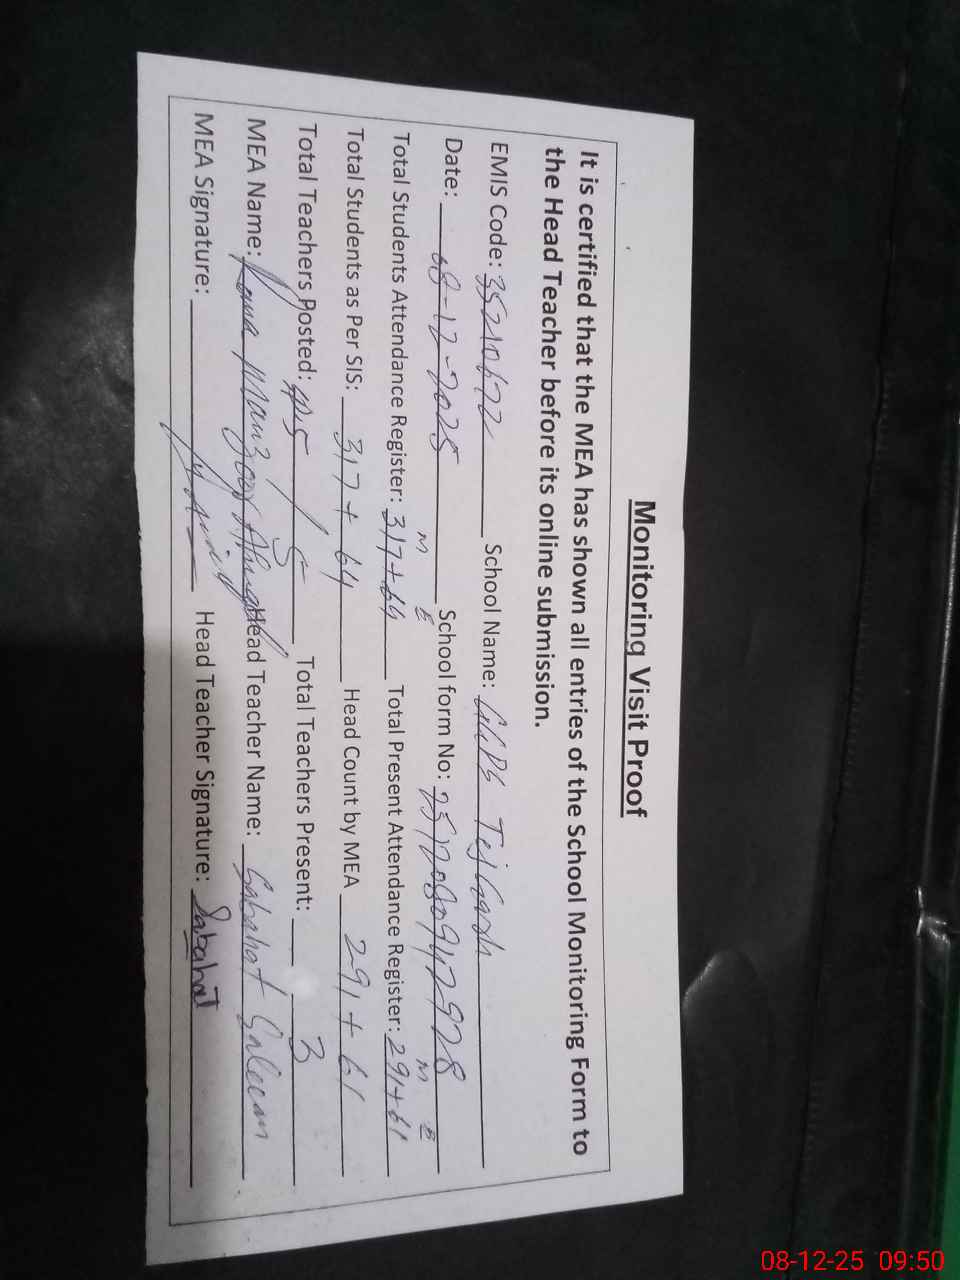 Monitoring Visit Proof
It is certified that the MEA has shown all entries of the School Monitoring Form to
the Head Teacher before its online submission.
EMIS Code: 35210672 School Name: GGPS Tej Garh
Date: 08-12-2025 School form No:
M E M E
Total Students Attendance Register: 317+64 Total Present Attendance Register: 291+61
Total Students as Per SIS: 317+64 Head Count by MEA 291+61
Total Teachers Posted: 5 Total Teachers Present: 3
MEA Name: Manzoor Head Teacher Name: Sabahat Saleem
MEA Signature: Head Teacher Signature: Sabahat
08-12-25 09:50